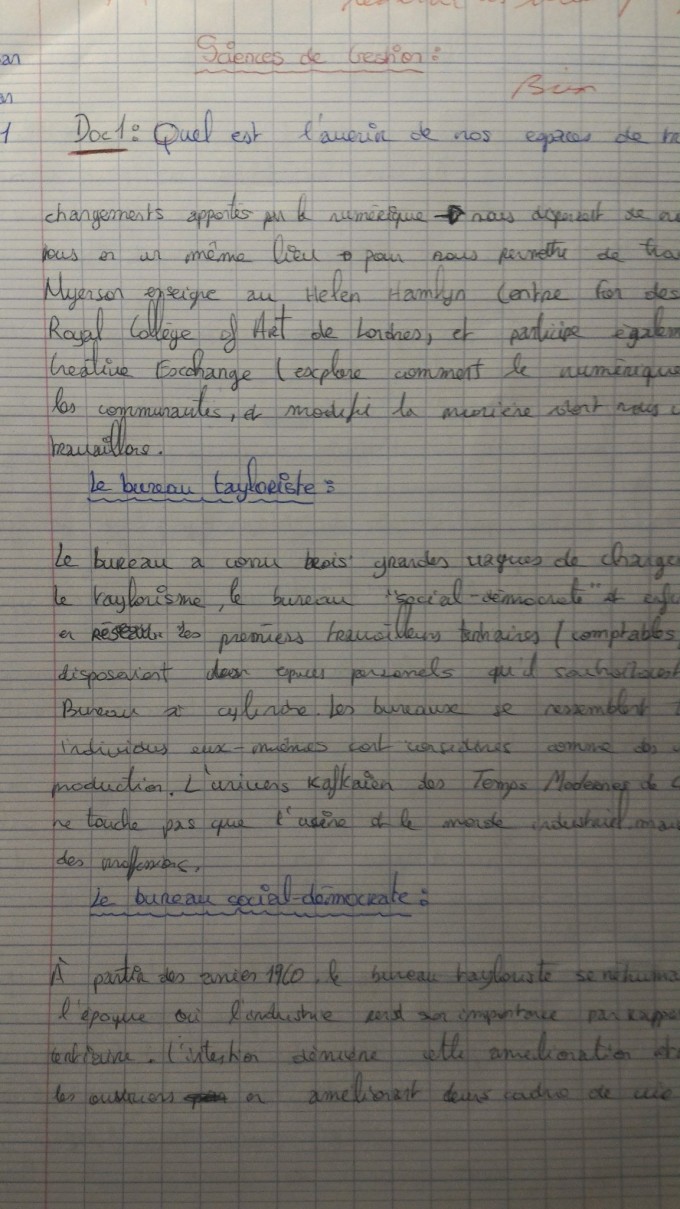 Sciences de Gestion :
Bien
an
an
1 Doc 1 : Quel est l'avenir de nos espaces de tra
changements apportés par le numérique → nous disposent de
tous en un même lieu → pour nous permettre de tra
Myerson enseigne au Helen Hamlyn Centre for des
Royal College of Art de Londres, et participe égalem
Créative Exchange (explore comment le numérique
les communautés, et modifi la manière dont nous
travaillons.
Le bureau tayloriste :
Le bureau a connu trois grandes vagues de change
le taylorisme, le bureau "social-démocrate" et enfi
en Réseau. les premiers travailleurs tertiaires (comptables
disposaient espaces personnels qu'il souhaitaient
Bureau à cylindre. Les bureaux se ressemblent
individus eux-mêmes sont considérés comme des
production. L'univers Kafkaïen des Temps Modernes de C
ne touche pas que l'usine et le monde industriel mai
des professions.
Le bureau social-démocrate :
À partir des années 1960, le bureau tayloriste se
l'époque où l'industrie perd son importance par rappo
tertiaire. L'intention derrière cette amelioration
les ouvriers en améliorant leurs cadre de vie